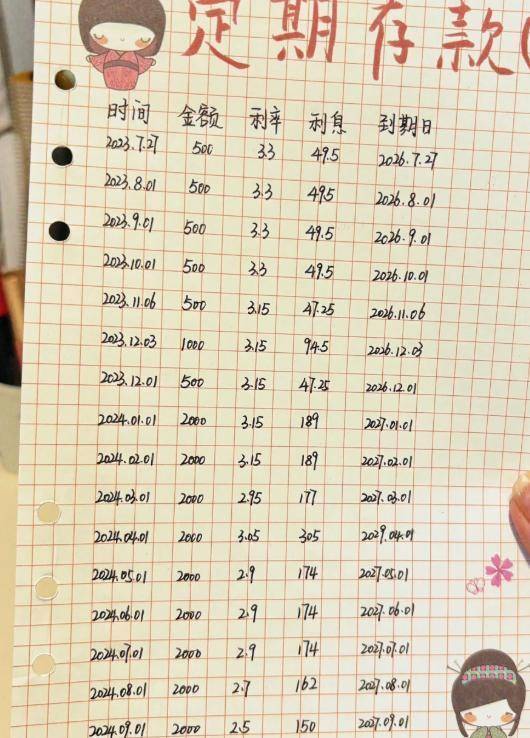 定期存款
时间 金额 利率 利息 到期日
2023.7.27 500 3.3 49.5 2026.7.27
2023.8.01 500 3.3 49.5 2026.8.01
2023.9.01 500 3.3 49.5 2026.9.01
2023.10.01 500 3.3 49.5 2026.10.01
2023.11.06 500 3.15 47.25 2026.11.06
2023.12.03 1000 3.15 94.5 2026.12.03
2023.12.01 500 3.15 47.25 2026.12.01
2024.01.01 2000 3.15 189 2027.01.01
2024.02.01 2000 3.15 189 2027.02.01
2024.03.01 2000 2.95 177 2027.03.01
2024.04.01 2000 3.05 305 2029.04.01
2024.05.01 2000 2.9 174 2027.05.01
2024.06.01 2000 2.9 174 2027.06.01
2024.07.01 2000 2.9 174 2027.07.01
2024.08.01 2000 2.7 162 2027.08.01
2024.09.01 2000 2.5 150 2027.09.01